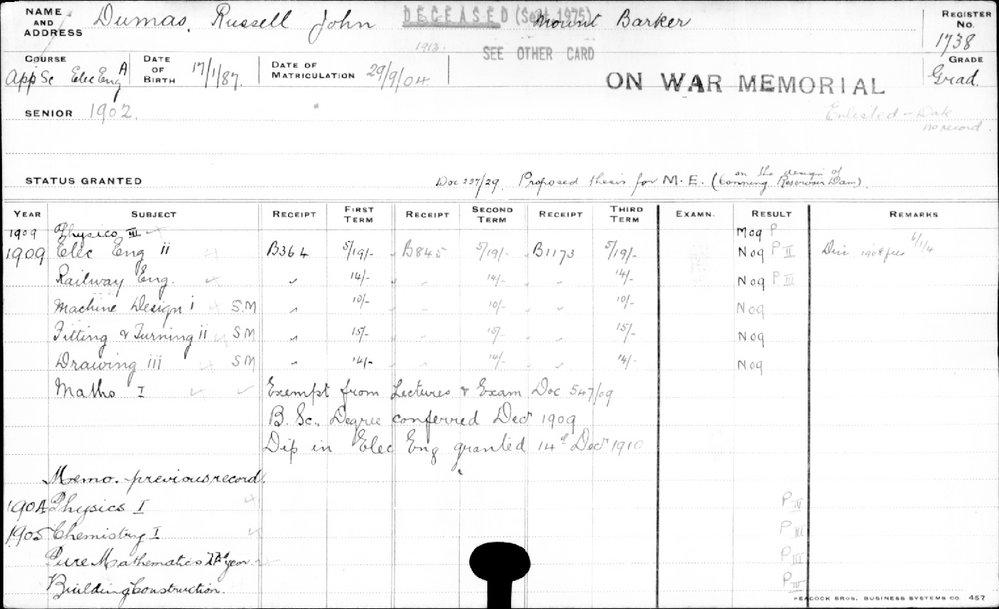 NAME AND ADDRESS Dumas, Russell John DECEASED (Sept. 1975) Mount Barker REGISTER No. 1738
1913. SEE OTHER CARD
COURSE App Sc Elec Eng A DATE OF BIRTH 17/1/87. DATE OF MATRICULATION 29/9/04 ON WAR MEMORIAL GRADE Grad.
SENIOR 1902. Enlisted - Dak
no record.
STATUS GRANTED Doc 237/29. Proposed thesis for M.E. (on the design of Canning Reservoir Dam).
YEAR SUBJECT RECEIPT FIRST TERM RECEIPT SECOND TERM RECEIPT THIRD TERM EXAMN. RESULT REMARKS
1909 Physics III Mog P
1909 Elec Eng ii B364 5/19/- B845 5/19/- B1173 5/19/- Nog P II Div. 1908 fees 6/1/4
Railway Eng. " 14/- " 14/- " 14/- Nog P III
Machine Design i S.M " 10/- " 10/- " 10/- Nog
Fitting & Turning ii S M " 15/- " 15/- " 15/- Nog
Drawing iii S M " 14/- " 14/- " 14/- Nog
Maths I Exempt from Lectures & Exam Doc 547/09
B. Sc. Degree conferred Decr 1909
Dip in Elec Eng granted 14th Decr 1910
Memo. previous record.
1904 Physics I P IV
1905 Chemistry I P III
Pure Mathematics IInd year P III
Building Construction. P IV
PEACOCK BROS. BUSINESS SYSTEMS CO. 457